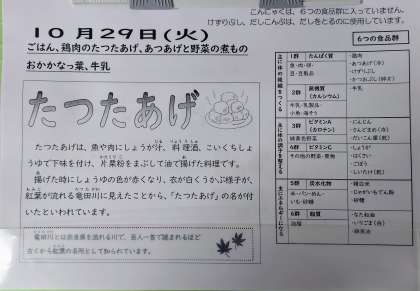 こんにゃくは、6つの食品群に入っていません。
けずりぶし、だしこんぶは、だしをとるのに使用しています。
10月29日(火)
ごはん、鶏肉のたつたあげ、あつあげと野菜の煮もの
おかかなっ葉、牛乳
たつたあげ
たつたあげは、魚や肉にしょうが汁、料理酒、こいくちしょ
うゆで下味を付け、片栗粉をまぶして油で揚げた料理です。
揚げた時にしょうゆの色が赤くなり、衣が白くうかぶ様子が、
紅葉が流れる竜田川に見えたことから、「たつたあげ」の名が付
いたといわれています。
竜田川とは奈良県を流れる川で、百人一首で詠まれるほど
古くから紅葉の名所として知られています。
6つの食品群
主に体の組織をつくる
1群 たんぱく質
魚・肉・卵・
豆・豆製品
・鶏肉
・あつあげ
・けずりぶし
・かつおぶし
2群 無機質
(カルシウム)
牛乳・乳製品
小魚・海そう
・牛乳
主に体の調子を整える
3群 ビタミンA
(カロテン)
緑黄色野菜
・にんじん
・さんどまめ(冷)
・だいこん葉
4群 ビタミンC
その他の野菜・果物
・しょうが
・はくさい
・ごぼう
・しいたけ(乾)
主にエネルギーになる
5群 炭水化物
米・パン・めん・
いも・砂糖
・精白米
・じゃがいもでん粉
・砂糖
6群 脂質
油脂
・なたね油
・いりごま
・綿実油